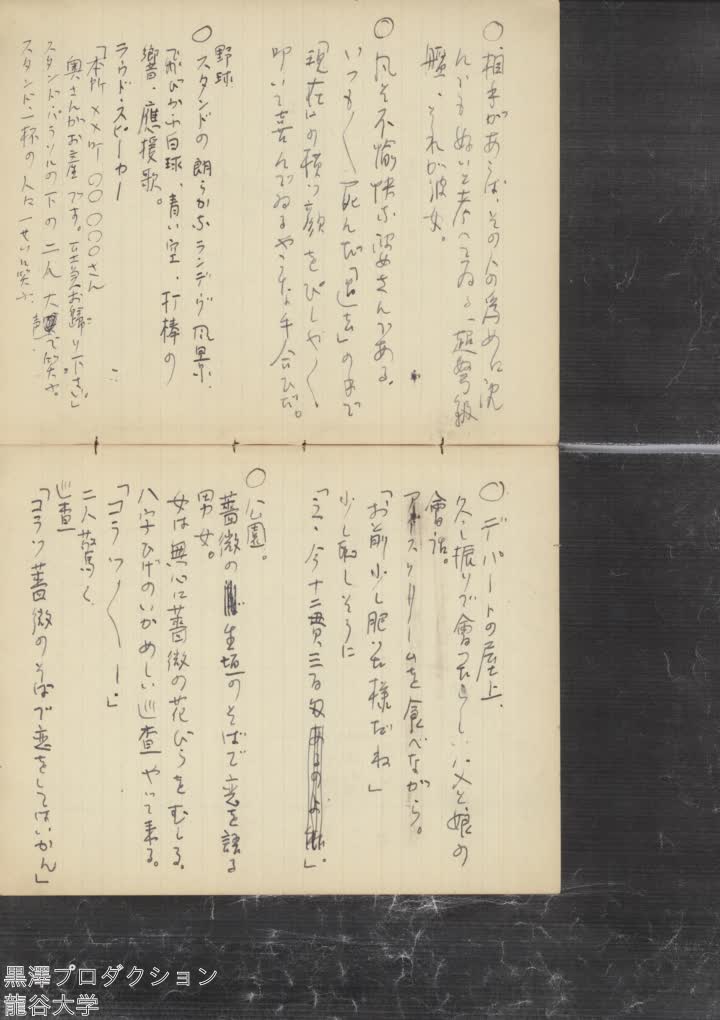 〇相手があらば、その人の為めに沈
んでもぬいと考へてゐる、超弩級
艦、それが彼女。
〇凡そ不愉快な眺めさんである。
いつも〱死んだ「過去」の手で
「現在」の横つ顔をぴしや〱、
叩いて喜んでゐるやうな手合ひだ。
野球
〇スタンドの朗らかなランデヴ風景、
飛びかふ白球、青い空、打棒の
響、應援歌。
ラウド・スピーカー
「本所××町〇〇〇〇〇さん
奥さんがお産です。至急お歸り下さい」
スタンド・パラソルの下の二人大口で笑ふ。
スタンド一杯の人に一せいに笑ふ聲
〇デパートの屋上、
久し振りで會つたらしい父と娘の
會話。
アイスクリームを食べながら。
「お前少し肥つた様だね」
少し恥しそうに
「えゝ今十二貫三百匁」。
〇公園。
薔薇の生垣のそばで恋を語る
男女。
女は無心に薔薇の花びらをむしる。
八字ひげのいかめしい巡査やつて来る。
「コラツ〱ー!」
二人驚く
巡査
「コラツ薔薇のそばで恋をしてはいかん」
黒澤プロダクション
龍谷大学